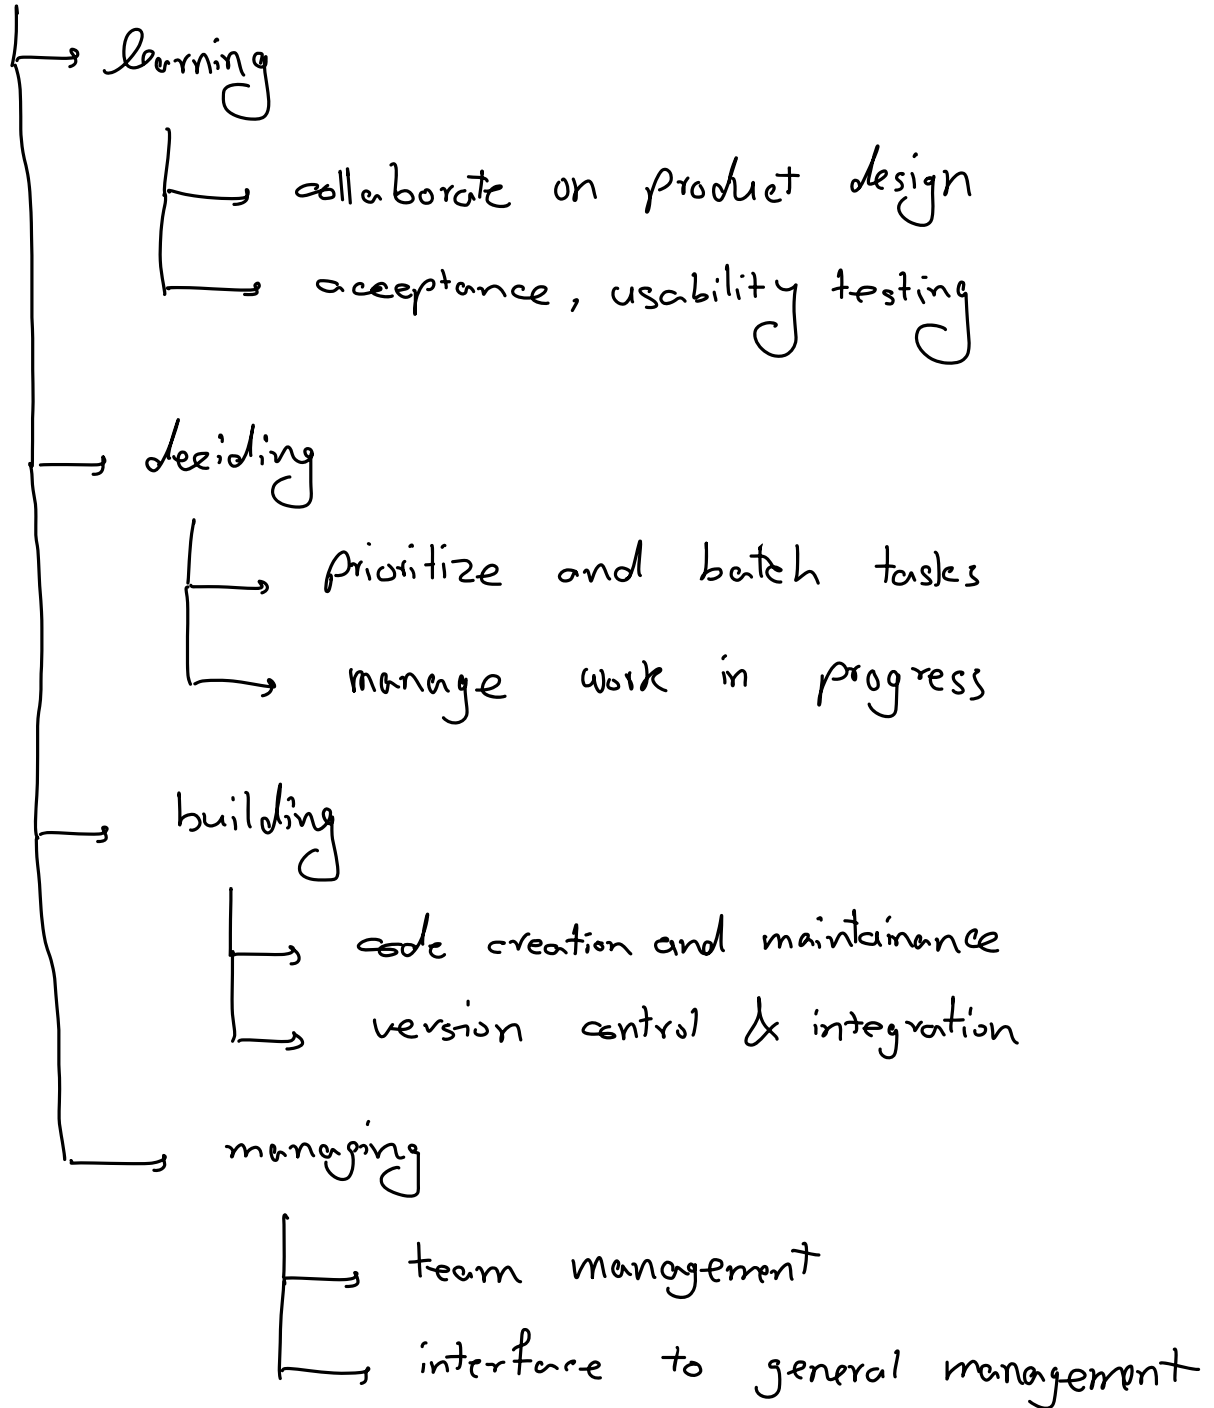 learning
collaborate on product design
acceptance, usability testing
deciding
prioritize and batch tasks
manage work in progress
building
code creation and maintainance
version control & integration
managing
team management
interface to general management